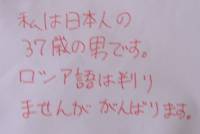 私は日本人の
37歳の男です。
ロシア語は判り
ませんが がんばります。